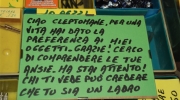 CIAO CLEPTOMANE, PER UNA
VITA HAI DATO LA
PREFERENZA AI MIEI
OGGETTI. GRAZIE! CERCO
DI COMPRENDERE LE TUE
ANSIE. MA STAI ATTENTO!
CHI TI VEDE PUÒ CREDERE
CHE TU SIA UN LADRO